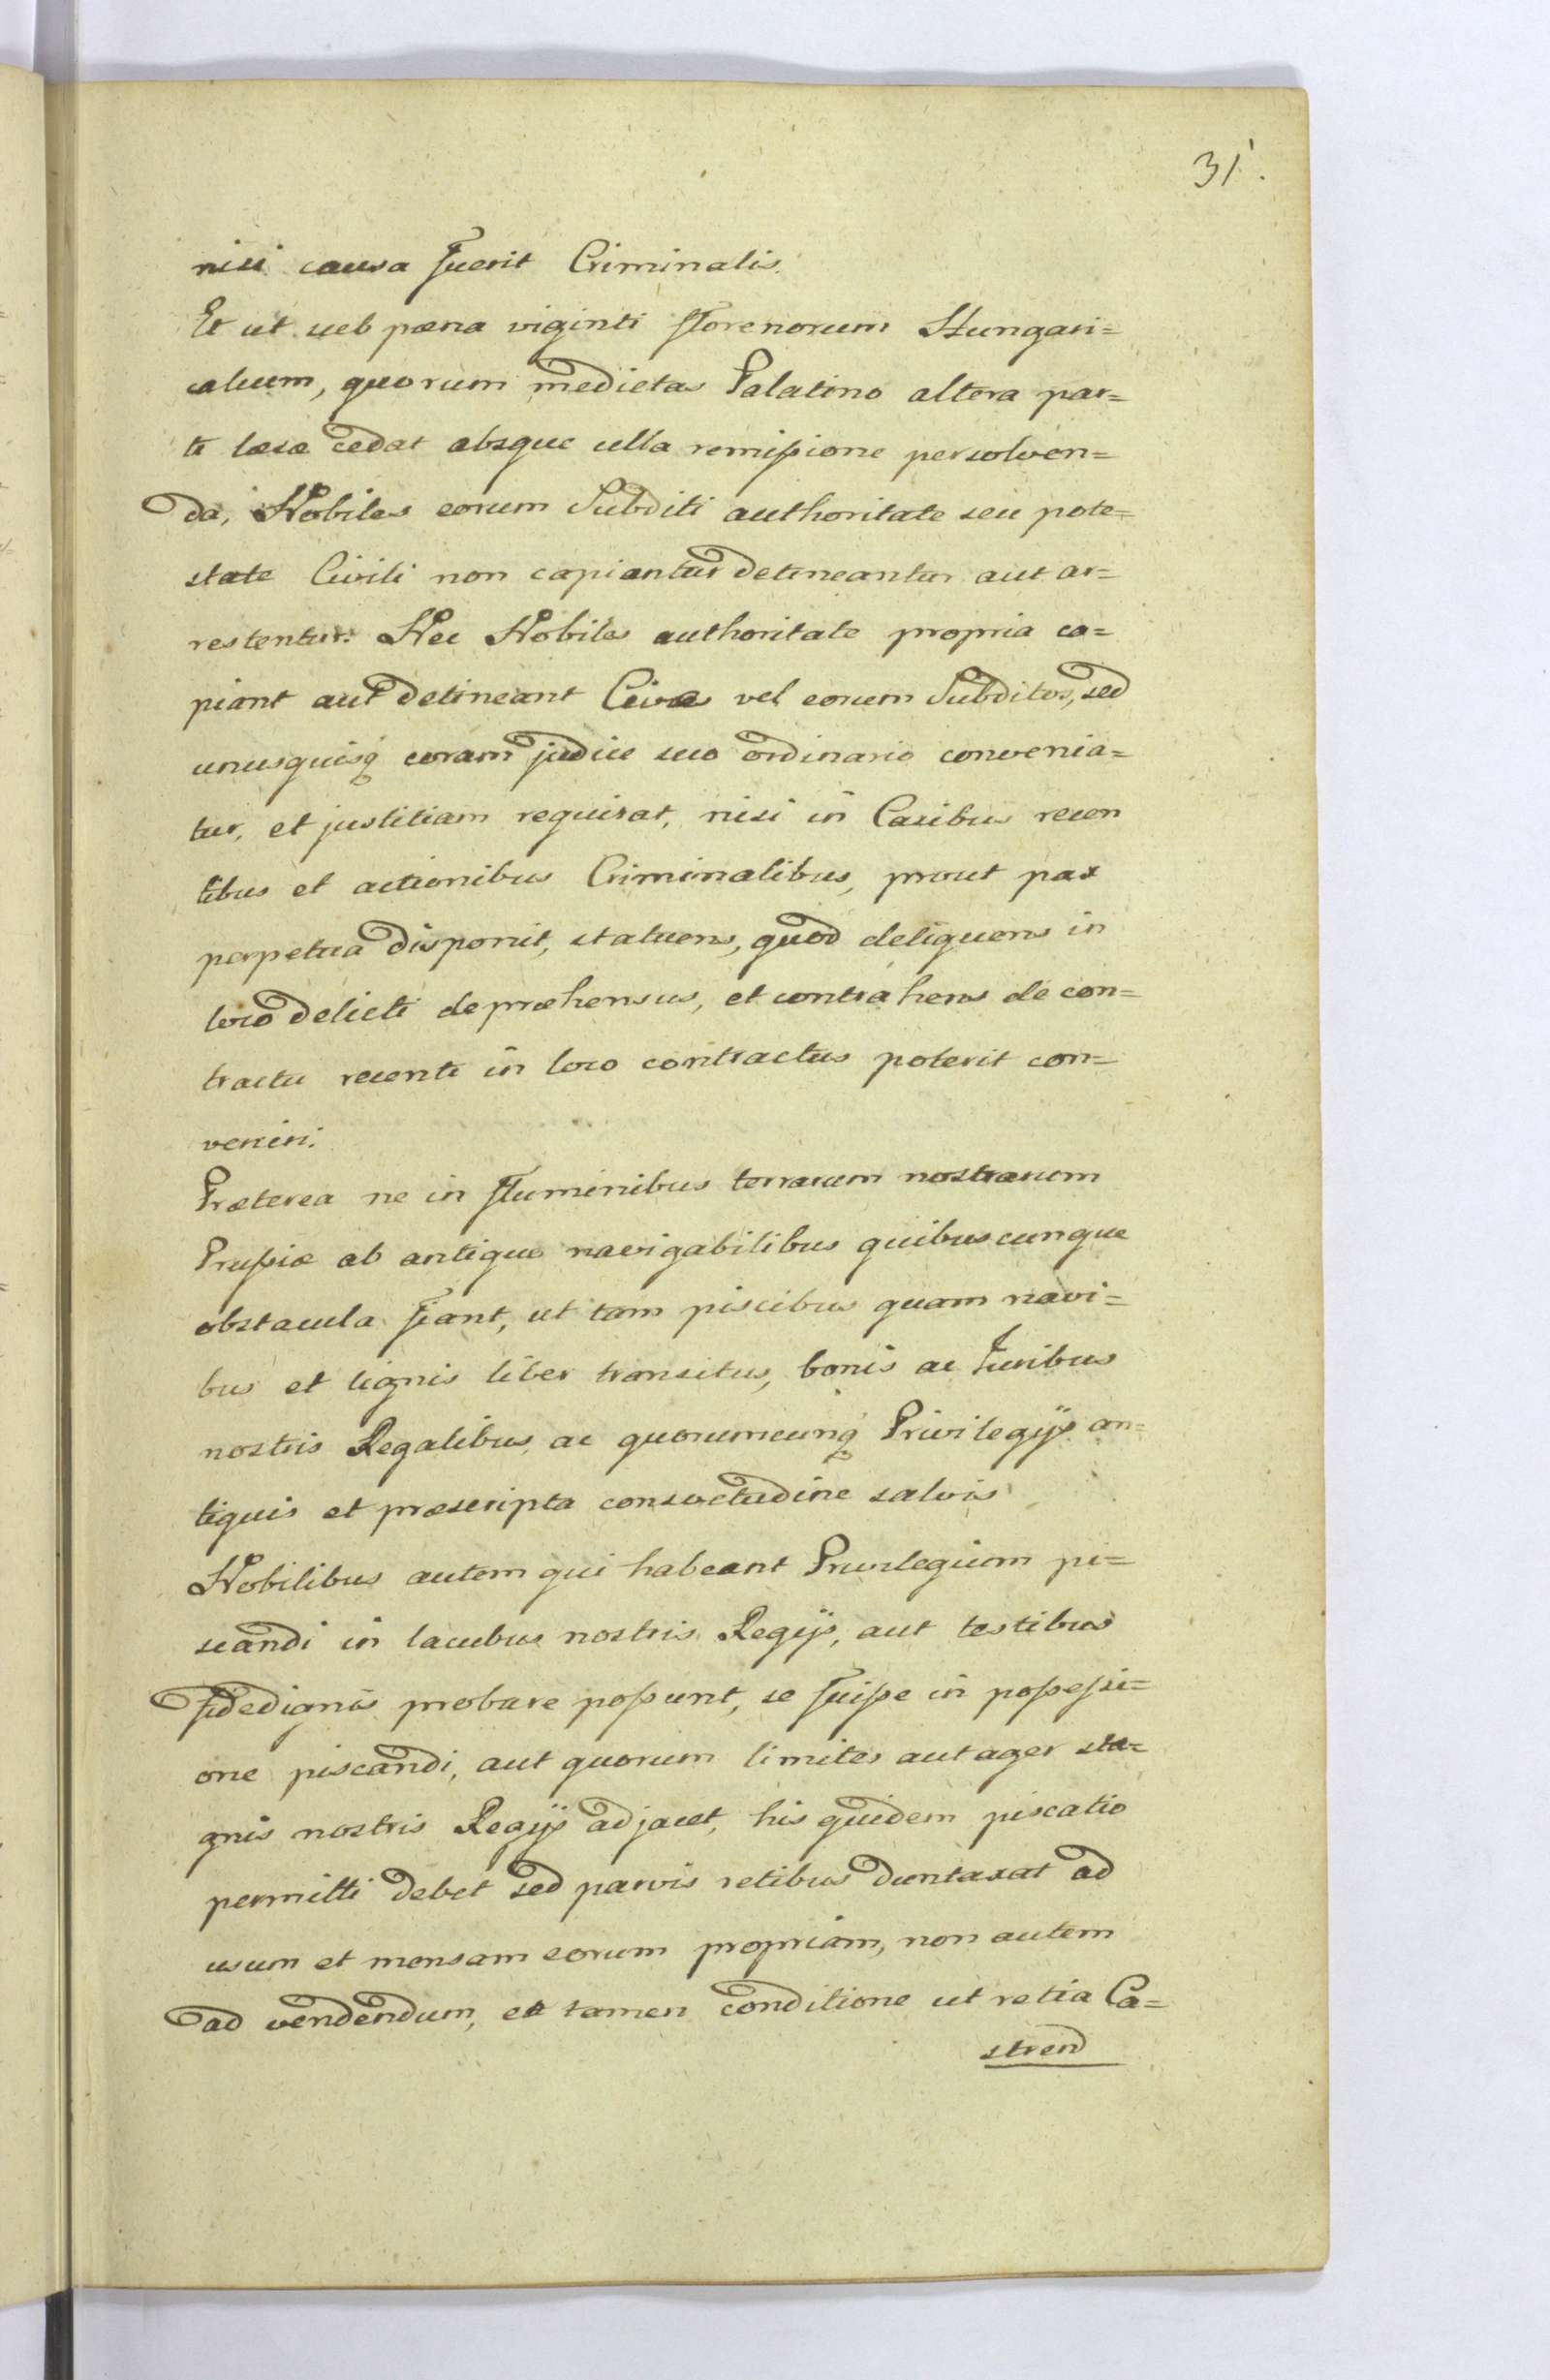 31.
nisi causa fuerit Criminalis.
Et ut sub pœna viginti florenorum Hungari=
calium, quorum medietas Palatino altera par=
ti læsæ cedat absque ulla remißione persolven=
da, Nobiles eorum Subditi authoritate seu pote=
state Civili non capiantur detineantur aut ar=
restentur. Nec Nobiles authoritate propria ca=
piant aut detineant Cives vel eorum Subditos, sed
unusquisq coram judice suo ordinario convenia=
tur, et justitiam requirat, nisi in Casibus recen
tibus et actionibus Criminalibus, prout pax
perpetua disponit, statuens, quod deliquens in
loco delicti depræhensus, et contrahens de con=
tractu recenti in loco contractus poterit con=
veniri.
Præterea ne in fluminibus terrarum nostrarum
Prußiæ ab antiquo navigabilibus quibuscunque
obstacula fiant, ut tam piscibus quam navi=
bus et lignis liber transitus, bonis ac Juribus
nostris Regalibus, ac quorumcunq Privilegijs an=
tiquis et præscripta consvetudine salvis
Nobilibus autem qui habeant Privilegium pi=
scandi in lacubus nostris Regijs, aut testibus
fidedignis probare poßunt, se fuiße in poßeßi=
one piscandi, aut quorum limites aut ager sta=
gnis nostris Regijs adjacet, his quidem piscatio
permitti debet sed parvis retibus duntaxat ad
usum et mensam eorum propriam, non autem
ad vendendum, ea tamen conditione ut retia Ca=
strend